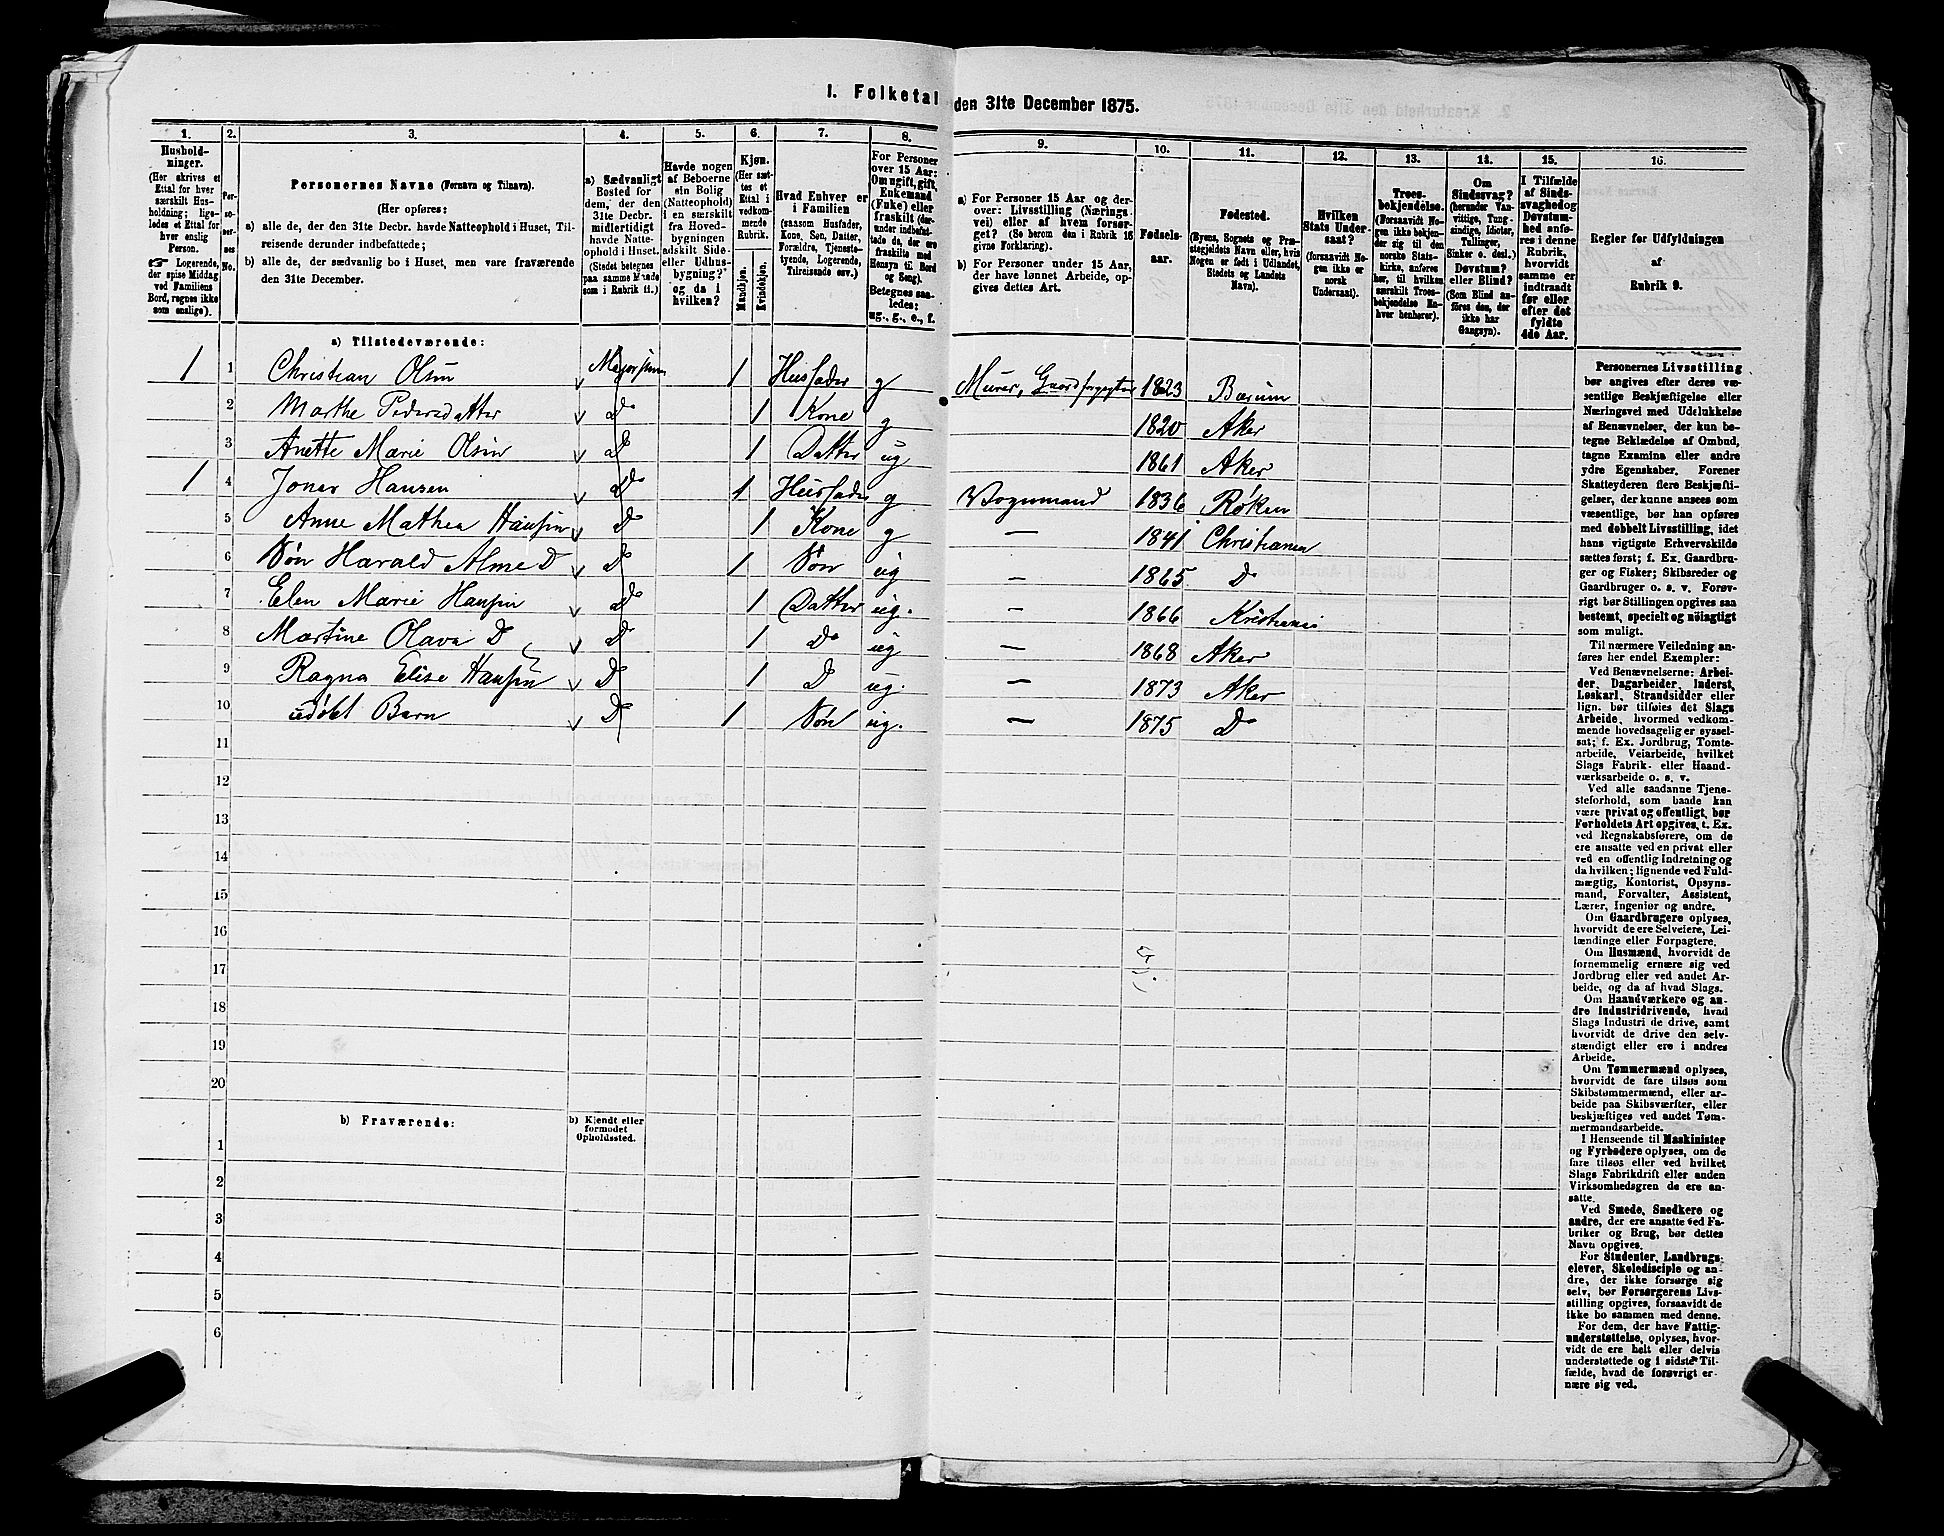 1. Folketal den 31te December 1875.
1. 2. 3. 4. 5. 6. 7. 8. 9. 10. 11. 12. 13. 14. 15. 16.
Hushold-
ninger.
(Her skrives et
Ettal for hver
særskilt Hus-
holdning; lige-
ledes et Ettal for
hver enslig
Person.
☛ Logerende,
der spise Middag
ved Familiens
Bord, regnes ikke
som enslige).
Per-
so-
ner-
nes
No.
Personernes Navne (Fornavn og Tilnavn).
(Her opføres:
a) alle de, der den 31te Decbr. havde Natteophold i Huset, Til-
reisende derunder indbefattede;
b) alle de, der sædvanlig bo i Huset, men vare fraværende
den 31te December.
a) Sædvanligt
Bosted for
dem, der den
31te Decbr.
midlertidigt
havde Natte-
ophold i Huset.
(Stedet betegnes
paa samme Maade
som i Rubrik 11.)
Havde nogen
af Beboerne
sin Bolig
(Natteophold)
i en særskilt
fra Hoved-
bygningen
adskilt Side-
eller Udhus-
bygning?
og da i
hvilken?
Kjøn.
(Her sæt-
tes et
Ettal i
vedkom-
mende
Rubrik.
Mandkjøn.
Kvindekjøn.
Hvad Enhver er
i Familien
(saasom Husfader,
Kone, Søn, Datter,
Forældre, Tjeneste-
tyende, Logerende,
Tilreisende osv.)
For Personer
over 15 Aar:
Om ugift, gift,
Enkemand
(Enke) eller
fraskilt (der-
under indbefat-
tede de, der ere
fraskilte med
Hensyn til Bord
og Seng).
Betegnes saa-
ledes:
ug., g., e., f.
a) For Personer 15 Aar og der-
over: Livsstilling (Nærings-
vei) eller af hvem forsør-
get? (Se herom den i Rubrik 16
givne Forklaring).
b) For Personer under 15 Aar,
der have lønnet Arbeide, op-
gives dettes Art.
Fødsels-
aar.
Fødested.
(Byens, Sognets og Præ-
stegjeldets Navn eller, hvis
Nogen er født i Udlandet,
Stedets og Landets
Navn).
Hvilken
Stats Under-
saat?
(forsaavidt No-
gen ikke er
norsk
Undersaat).
Troes-
bekjendelse.
(Forsaavidt No-
gen ikke bekjen-
der sig til den
norske Stats-
kirke, anføres
her, til hvilken
særskilt Troes-
bekjendelse En-
hver henhører).
Om
Sindssvag?
(herunder Van-
vittige, Tung-
sindige, Idioter,
Tullinger,
Sinker o. desl.)
Døvstum?
eller Blind?
(Som Blind an-
føres den, der
ikke har
Gangsyn).
I Tilfælde
af Sinds-
svaghed og
Døvstum-
hed anfø-
res i denne
Rubrik,
hvorvidt
samme er
indtraadt
før eller
efter det
fyldte
4de Aar.
Regler for Udfyldningen
af
Rubrik 9.
a) Tilstedeværende:
1 1 Christian Olsen 1 Husfader g Murer, 1823 Bærum
2 Marthe Pedersdatter Do 1 Kone g 1820 Aker
3 Anette Marie Olsen D 1 Datter ug 1861 Aker
1 4 Jonas Hansen Do 1 Husfader g Vognmand 1836 Røken
5 Anne Mathea Hansen D 1 Kone g — 1841 Christiania
6 Søn Harald Alme D D 1 Søn ug — 1865 D
7 Elen Marie Hansen D 1 Datter ug. — 1866 Kristiania
8 Martine Olava D D 1 Do ug — 1868 Aker
9 Ragna Elise Hansen D 1 D ug. — 1873 Aker
10 udøbt Barn D 1 Søn ug. — 1875 Do
11
12
13
14
15
16
17
18
19
20
b) Fraværende:
b) Kjendt eller
formodet
Opholdssted.
1
2
3
4
5
6
Personernes Livsstilling
bør angives efter deres væ-
sentlige Beskjæftigelse eller
Næringsvei med Udelukkelse
af Benævnelser, der kun be-
tegne Beklædelse af Ombud,
tagne Examina eller andre
ydre Egenskaber. Forener
Skatteyderen flere Beskjæfti-
gelser, der kunne ansees som
væsentlige, bør han opføres
med dobbelt Livsstilling, idet
hans vigtigste Erhvervskilde
sættes først; f. Ex. Gaardbru-
ger og Fisker; Skibsreder og
Gaardbruger o. s. v. Forøv-
rigt bør Stillingen opgives saa
bestemt, specielt og nöiagtigt
som muligt.
Til nærmere Veiledning an-
føres her endel Exempler:
Ved Benævnelserne: Arbei-
der, Dagarbeider, Inderst,
Løskarl, Strandsidder eller
lign. bør tilføies det Slags
Arbeide, hvormed vedkom-
mende hovedsagelig er syssel-
sat; f. Ex. Jordbrug, Tomte-
arbeide, Veiarbeide, hvilket
Slags Fabrik- eller Haand-
værksarbeide o. s. v.
Ved alle saadanne Tjene-
steforhold, som baade kan
være privat og offentligt, bør
Forholdets Art opgives, t. Ex.
ved Regnskabsførere, om de
ere ansatte ved en privat eller
ved en offentlig Indretning og
da hvilken; lignende ved Fuld-
mægtig, Kontorist, Opsyns-
mand, Forvalter, Assistent,
Lærer, Ingeniør og andre.
Om Gaardbrugere oplyses,
hvorvidt de ere Selveiere, Lei-
lændinge eller Forpagtere.
Om Husmænd, hvorvidt de
fornemmelig ernære sig ved
Jordbrug eller ved andet Ar-
beide, og da af hvad Slags.
Om Haandværkere og an-
dre Industridrivende, hvad
Slags Industri de drive, samt
hvorvidt de drive den selv-
stændigt eller ere i andres
Arbeide.
Om Tømmermænd oplyses,
hvorvidt de fare tilsøs som
Skibstømmermænd, eller ar-
beide paa Skibsværfter, eller
beskjæftiges ved andet Tøm-
mermandsarbeide.
I Henseende til Maskinister
og Fyrbødere oplyses, om de
fare tilsøs eller ved hvilket
Slags Fabrikdrift eller anden
Virksomhedsgren de ere an-
satte.
Ved Smede, Snedkere og
andre, der ere ansatte ved Fa-
briker og Brug, bør dettes
Navn opgives.
For Studenter, Landbrugs-
elever, Skoledisciple og an-
dre, der ikke forsørge sig
selv, bør Forsørgerens Livs-
stilling opgives, forsaavidt de
ikke bo sammen med denne.
For dem, der have Fattig-
understøttelse, oplyses, hvor-
vidt de ere helt eller delvis
understøttede og i sidste Til-
fælde, hvad de forøvrigt er-
nære sig ved.